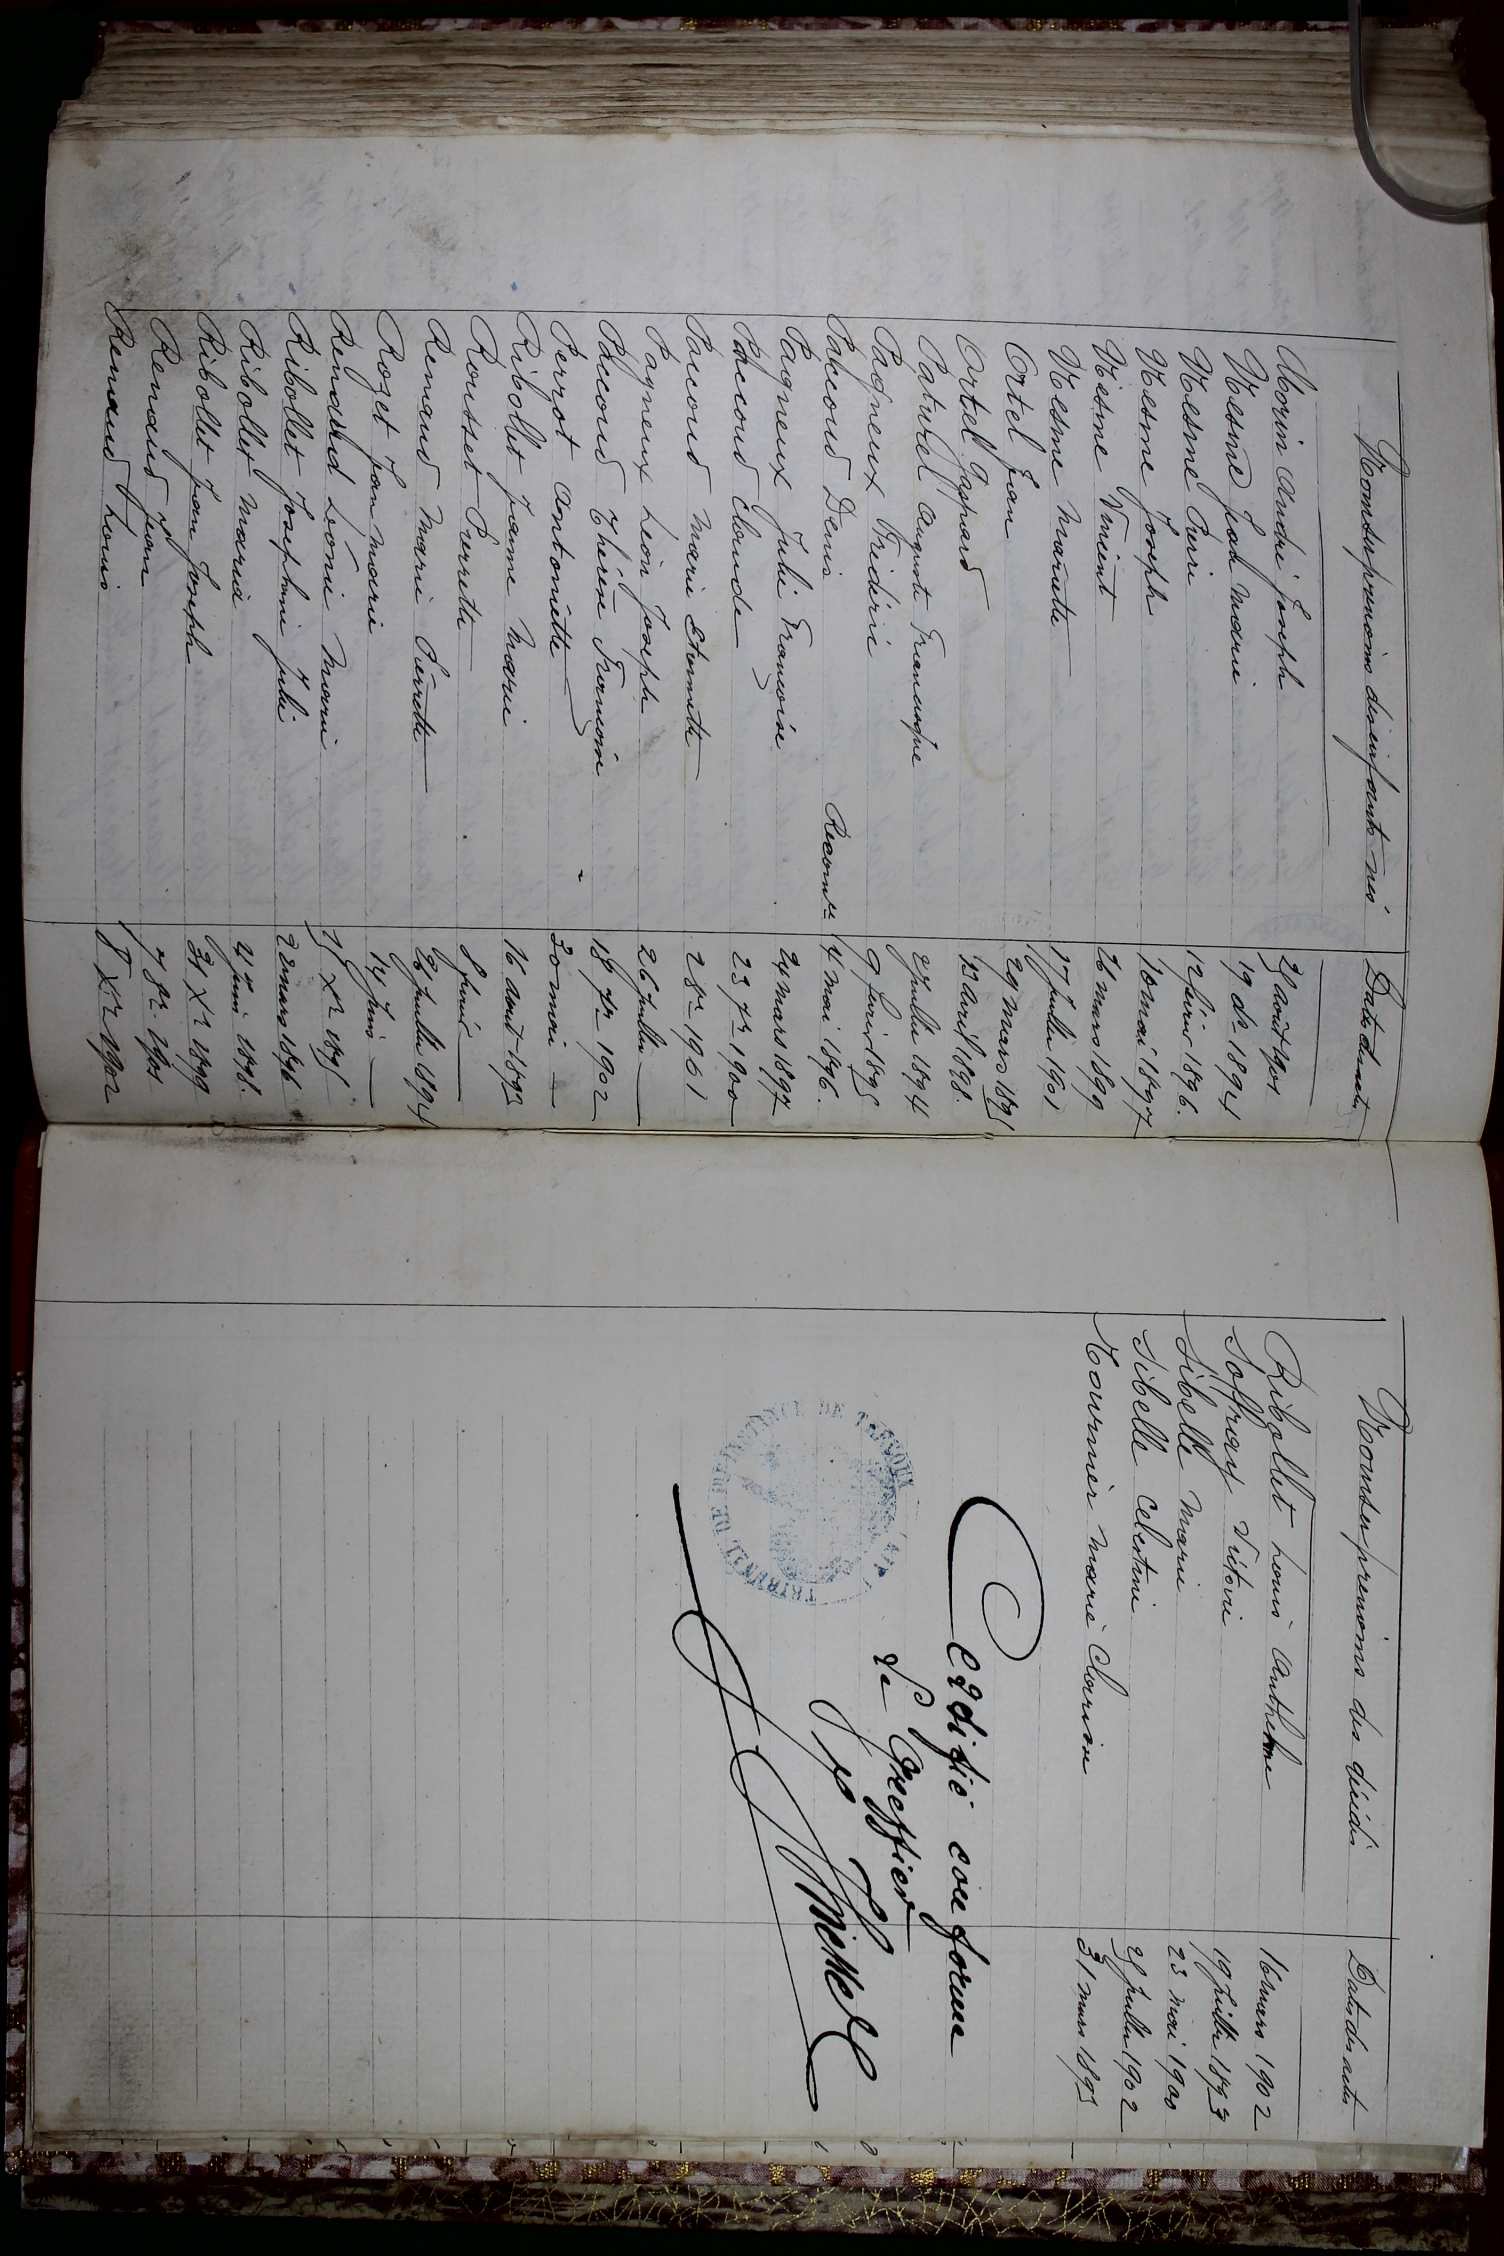 Noms et prénoms des enfants nés Dates des actes
Morin André Joseph 25 août 1901
Mesme Jean Marie 19 do 1894
Mesme Pierre 12 février 1896.
Mesme Joseph 10 mai 1897
Mesme Vincent 26 mars 1899
Mesme Mariette 17 juillet 1901
Ortel Jean 29 mars 1895
Ortel Gaspard 12 avril 1898.
Paturel Auguste Francisque juillet 1894
Pagneux Frédéric 9 février 1895
Paccoud Denis Reconn. 4 mai 1896.
Pagneux Julie Françoise 24 mars 1897
Paccoud Claude 23 7re 1900
Paccoud Marie Etiennette 2 8re 1901
Pagneux Léon Joseph 26 juillet —
Paccoud Thérèse Françoise 18 7re 1902
Perrot Antoinette 20 mai —
Ribollet Jeanne Marie 16 août 1893
Rousset Pierrette 8 février —
Renaud Marie Pierrette 26 juillet 1894
Roget Jean Marie 14 juin —
Renaud Léonie Marie Xre 1895
Ribollet Joséphine Julie 22 mars 1896
Ribollet Maria juin 1898.
Ribollet Jean Joseph 31 Xre 1899
Renaud Jean 7 8re 1901
Renaud Louis 8 Xre 1902
Noms et prénoms des décédés Dates des actes
Ribollet Louis Anthelme 16 mars 1902
Soffray Victoire 19 juillet 1893
Sibelle Marie 23 mai 1900
Sibelle Célestine juillet 1902
Tournier Marie Clarisse 31 mars 1895
Certifié conforme
Le Greffier
TRIBUNAL DE 1RE INSTANCE DE TRÉVOUX